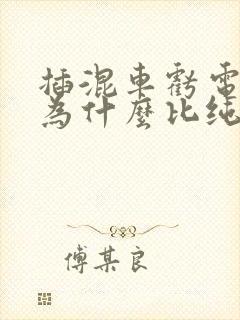 插混車虧電
為什麼比純
傅某良